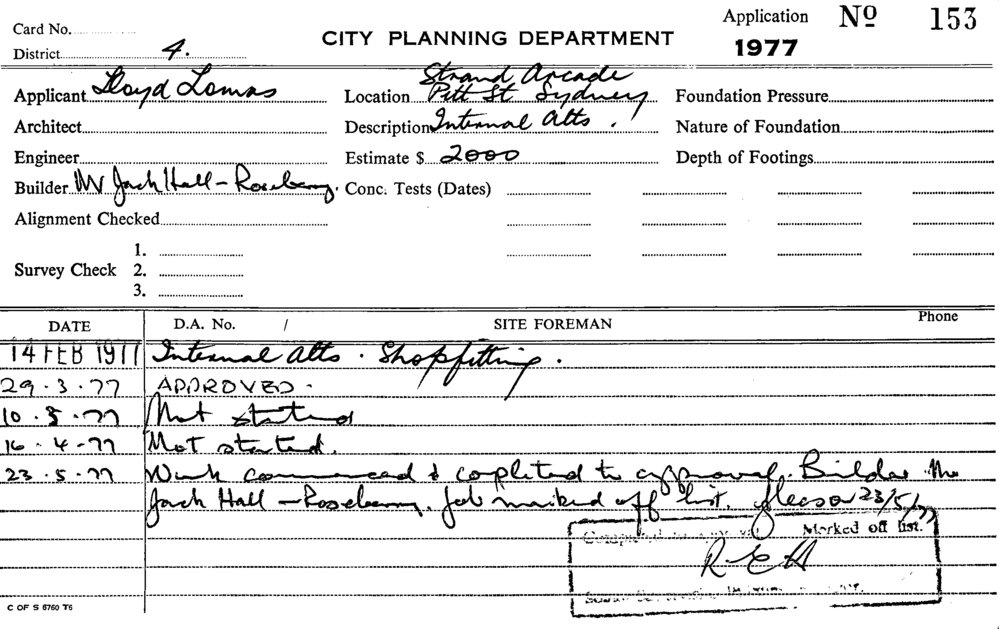 Card No.
District 4.
CITY PLANNING DEPARTMENT
Application No 153
1977
Applicant Lloyd Lomas
Location Strand Arcade
Pitt St Sydney
Foundation Pressure
Architect
Description Internal Alts.
Nature of Foundation
Engineer
Estimate $ 2000
Depth of Footings
Builder Mr Jack Hall - Rosebery.
Conc. Tests (Dates)
Alignment Checked
Survey Check
1.
2.
3.
DATE
D.A. No. /
SITE FOREMAN
Phone
14 FEB 1977 Internal Alts. Shopfitting.
29.3.77 APPROVED.
10.5.77 Not started
16.4.77 Not started.
23.5.77 Work commenced & completed to approval. Builder Mr
Jack Hall - Rosebery. Job marked off list. 23/5/77
Marked off list.
R.E.H
C OF S 6760 T6